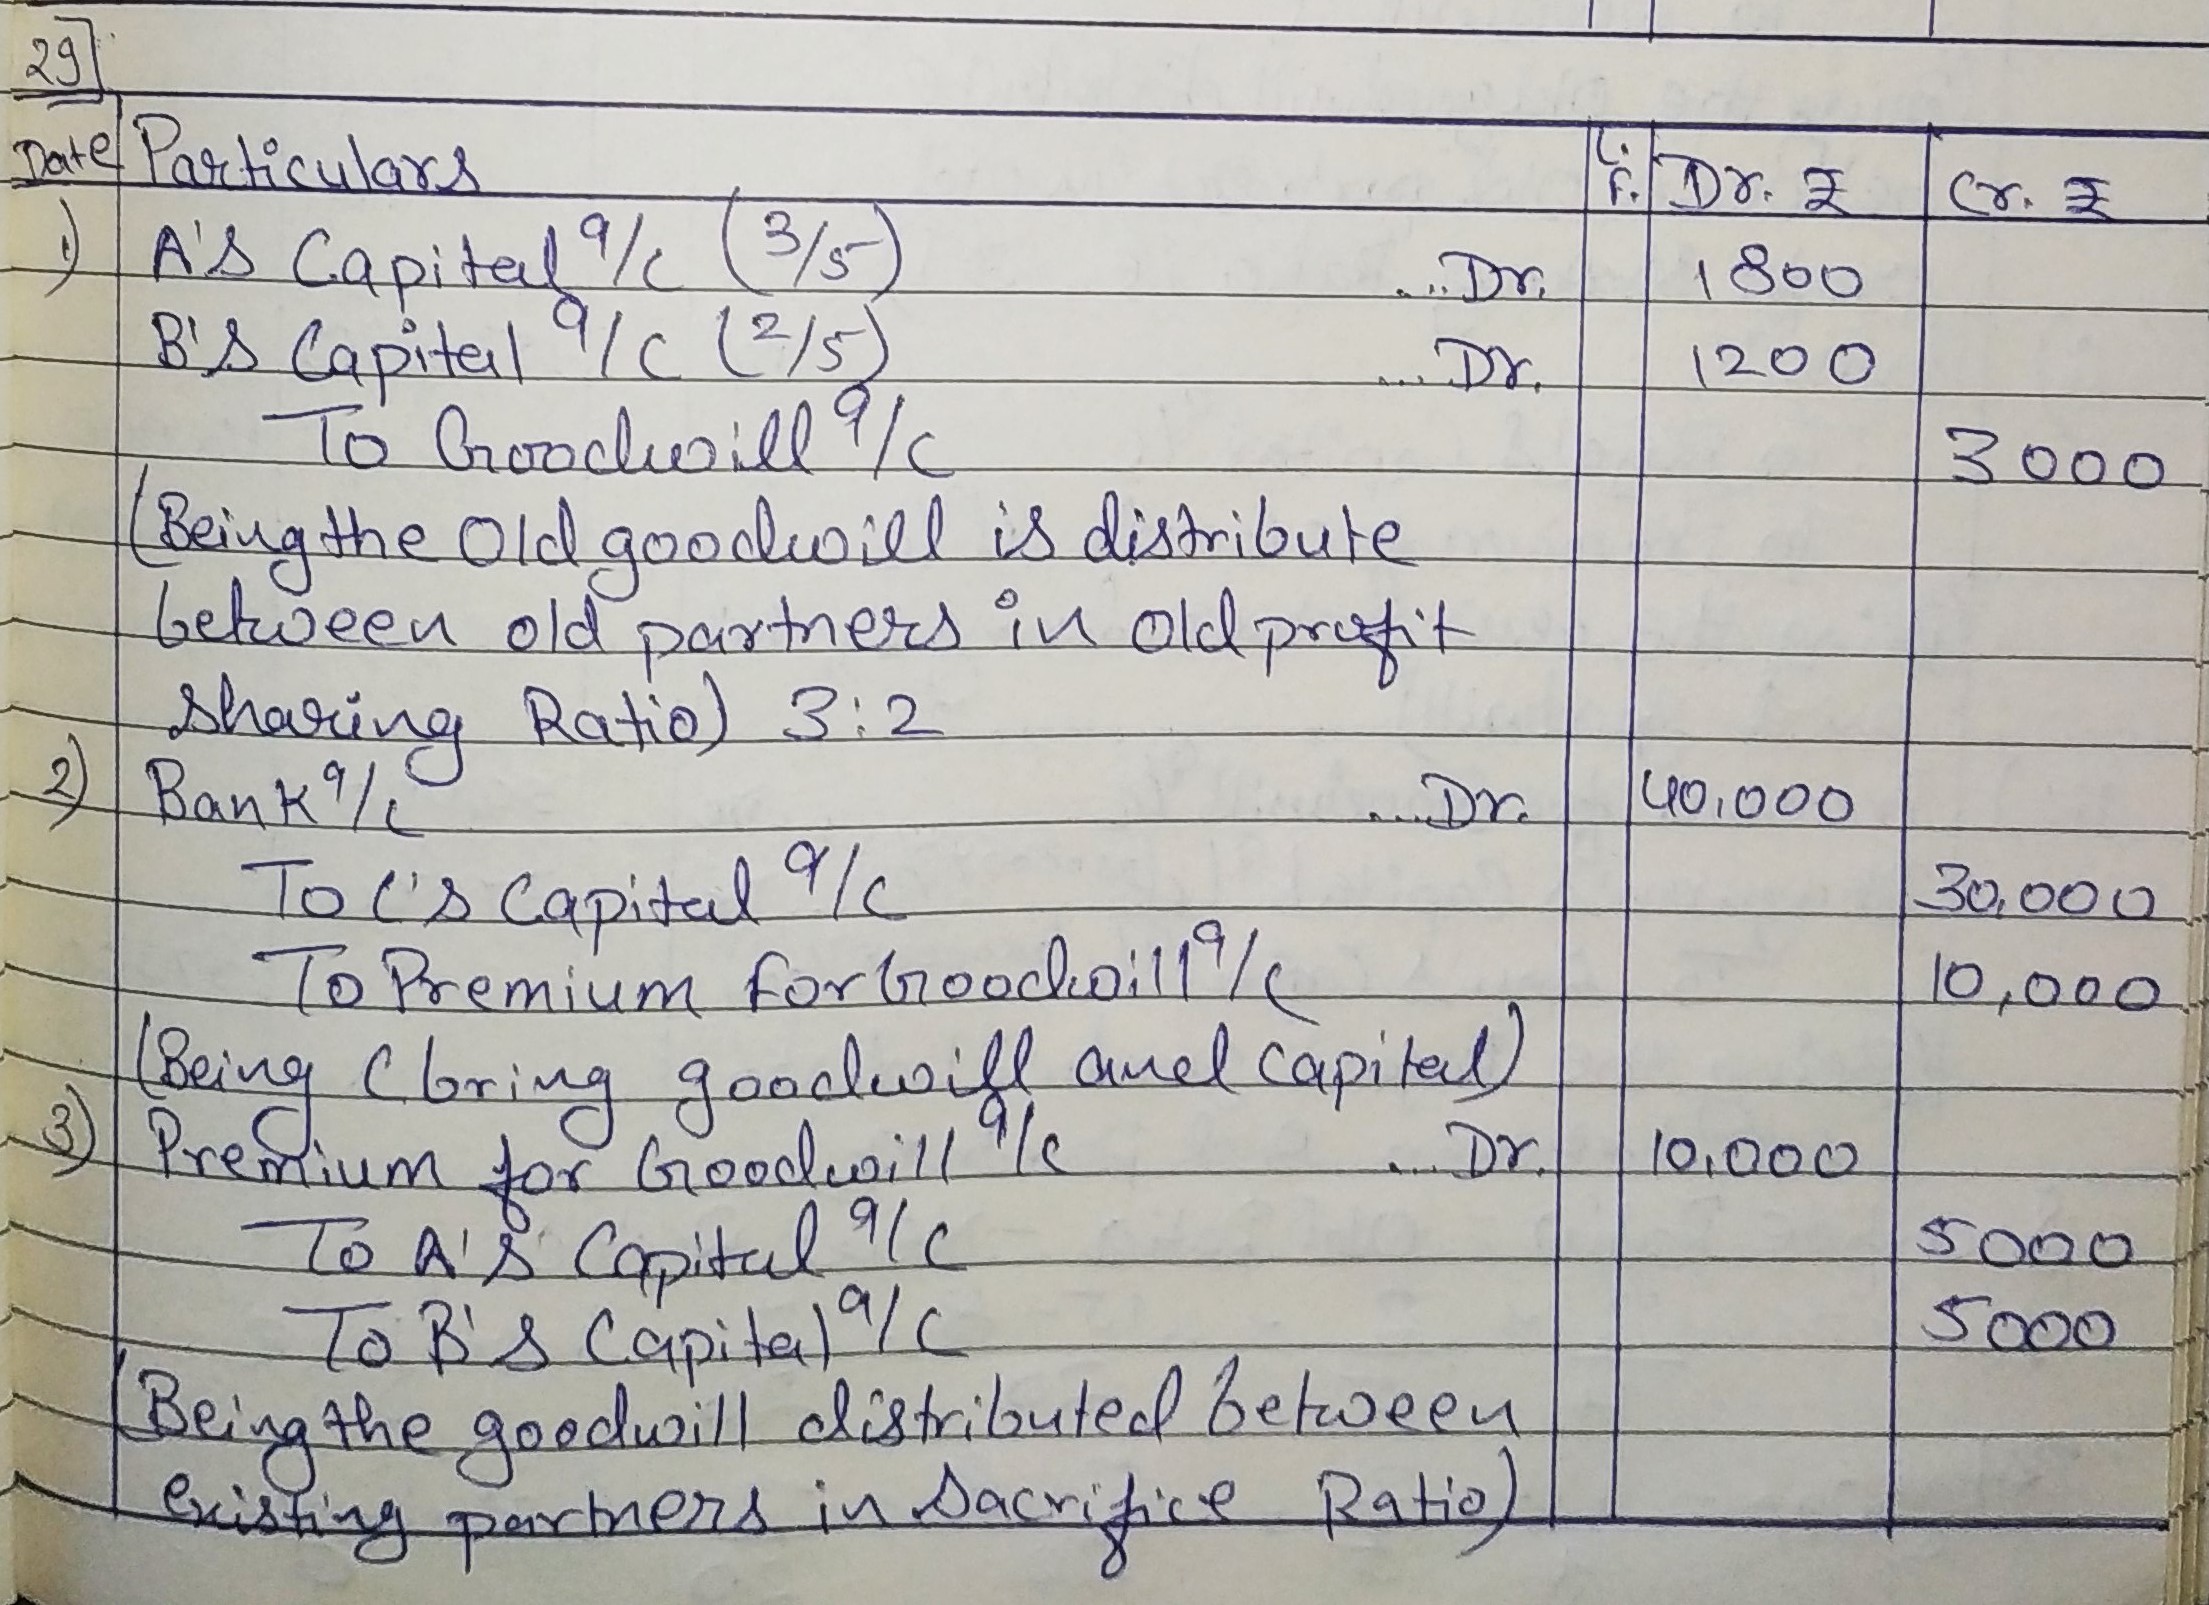 29]
Date Particulars L.F. Dr. ₹ Cr. ₹
1) A's Capital a/c (3/5) ... Dr. 1800
B's Capital a/c (2/5) ... Dr. 1200
To Goodwill a/c 3000
(Being the Old goodwill is distribute
between old partners in old profit
sharing Ratio) 3:2
2) Bank a/c ... Dr. 40,000
To C's Capital a/c 30,000
To Premium for Goodwill a/c 10,000
(Being C bring goodwill and capital)
3) Premium for Goodwill a/c ... Dr. 10,000
To A's Capital a/c 5000
To B's Capital a/c 5000
(Being the goodwill distributed between
existing partners in Sacrifice Ratio)